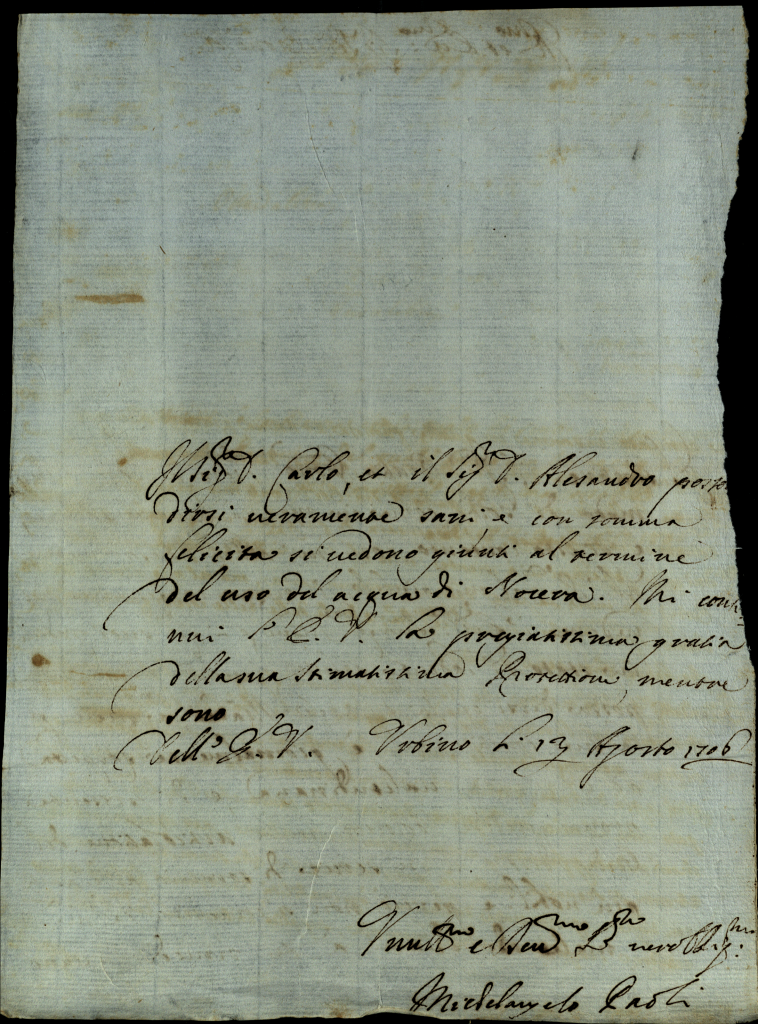 Il Sig.r D. Carlo, et il Sig.r D. Alesandro posson
dirsi veramente sani, e con somma
felicita si vedono giunti al termine
del uso del acqua di Nocera. Mi conti-
nui l' E. V. la pregiatissima gratia
della sua stimatissima Protettione, mentre
sono
Dell' E. V. Urbino li 13 Agosto 1706
Vmill.mo e Deu.mo Se.re vero Oblig.mo
Michelangelo Paoli